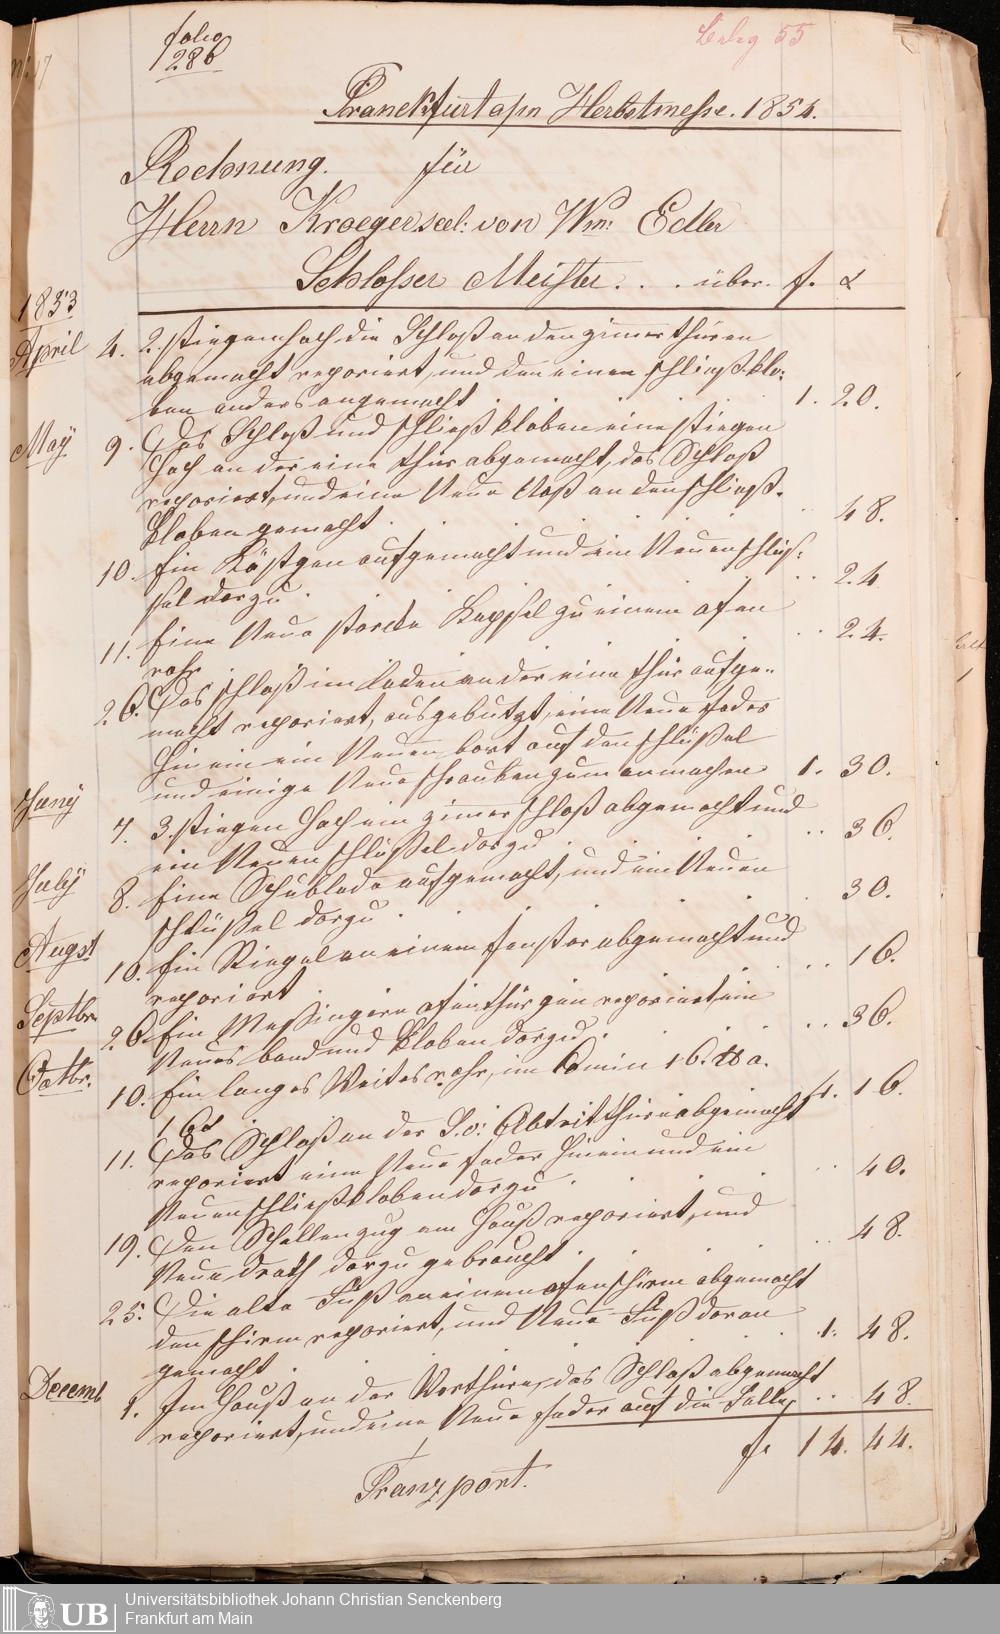 folio
286
Beleg 55
Franckfurt a/m Herbstmesse. 1854.
Rechnung. für
Herrn Kroeger seel: von Wm: Edler
Schlosser Meister . . . über. f. x
1853
April 4. 2. stiegen hoch die Schloß an den zimer thüren
abgemacht reporiert, und den einen schließklo-
ben anders angemacht . 1. 20.
May 9. Das Schloß und schließkloben eine stiegen
hoch an der eine thür abgemacht, das Schloß
reporiert, und eine Neue Naß an den schließ-
kloben gemacht . 48.
10. Ein Kästgen aufgemacht und ein Neuen schlüs-
sel dorzu . 24
11. Eine Neue starcke Kapsel zu einem ofen
rohr . 24.
26. Das schloß im laden an der eine thür aufge-
macht reporiert, ausgebutzt, eine Neue feder
hinein ein Neuen bart auf den schlüßel
und einige Neue schrauben zum anmachen 1. 30.
Juny 7. 3. stiegen hoch ein zimer schloß abgemacht und
ein Neuen schlüßel dorzu . 36.
July 8. Eine Schublade aufgemacht, und ein Neuen
schlüßel dorzu . 30.
Augst 10. Ein Riegel an einem fenster abgemacht und
reporiert . 16.
Septbr. 26. Ein Meßingern ofenthürgen reporiert ein
Neues band und kloben dorzu . 36.
Octbr. 10. Ein langes Weites rohr, im Camin 16. ℔ a.
16x 4. 16.
11. Das Schloß an der S.v: Abtritt thüre abgemacht
reporiert eine Neue feder hinein und ein
Neuen schließkloben dorzu . 40.
19. Den Schellenzug am Hauß reporiert, und
Neue drath dorzu gebraucht . 48.
25. Die alte Füß an einem ofenschirm abgemacht
den schirm reporiert, und Neue Füß daran
gemacht . 1. 48.
Decemb 1. Im Hauß an der Vorthüre, das Schloß abgemacht
reporiert, und eine Neue feder auf die Falle, . . 48.
f. 14. 44.
Tranzport.
Universitätsbibliothek Johann Christian Senckenberg
Frankfurt am Main
UB